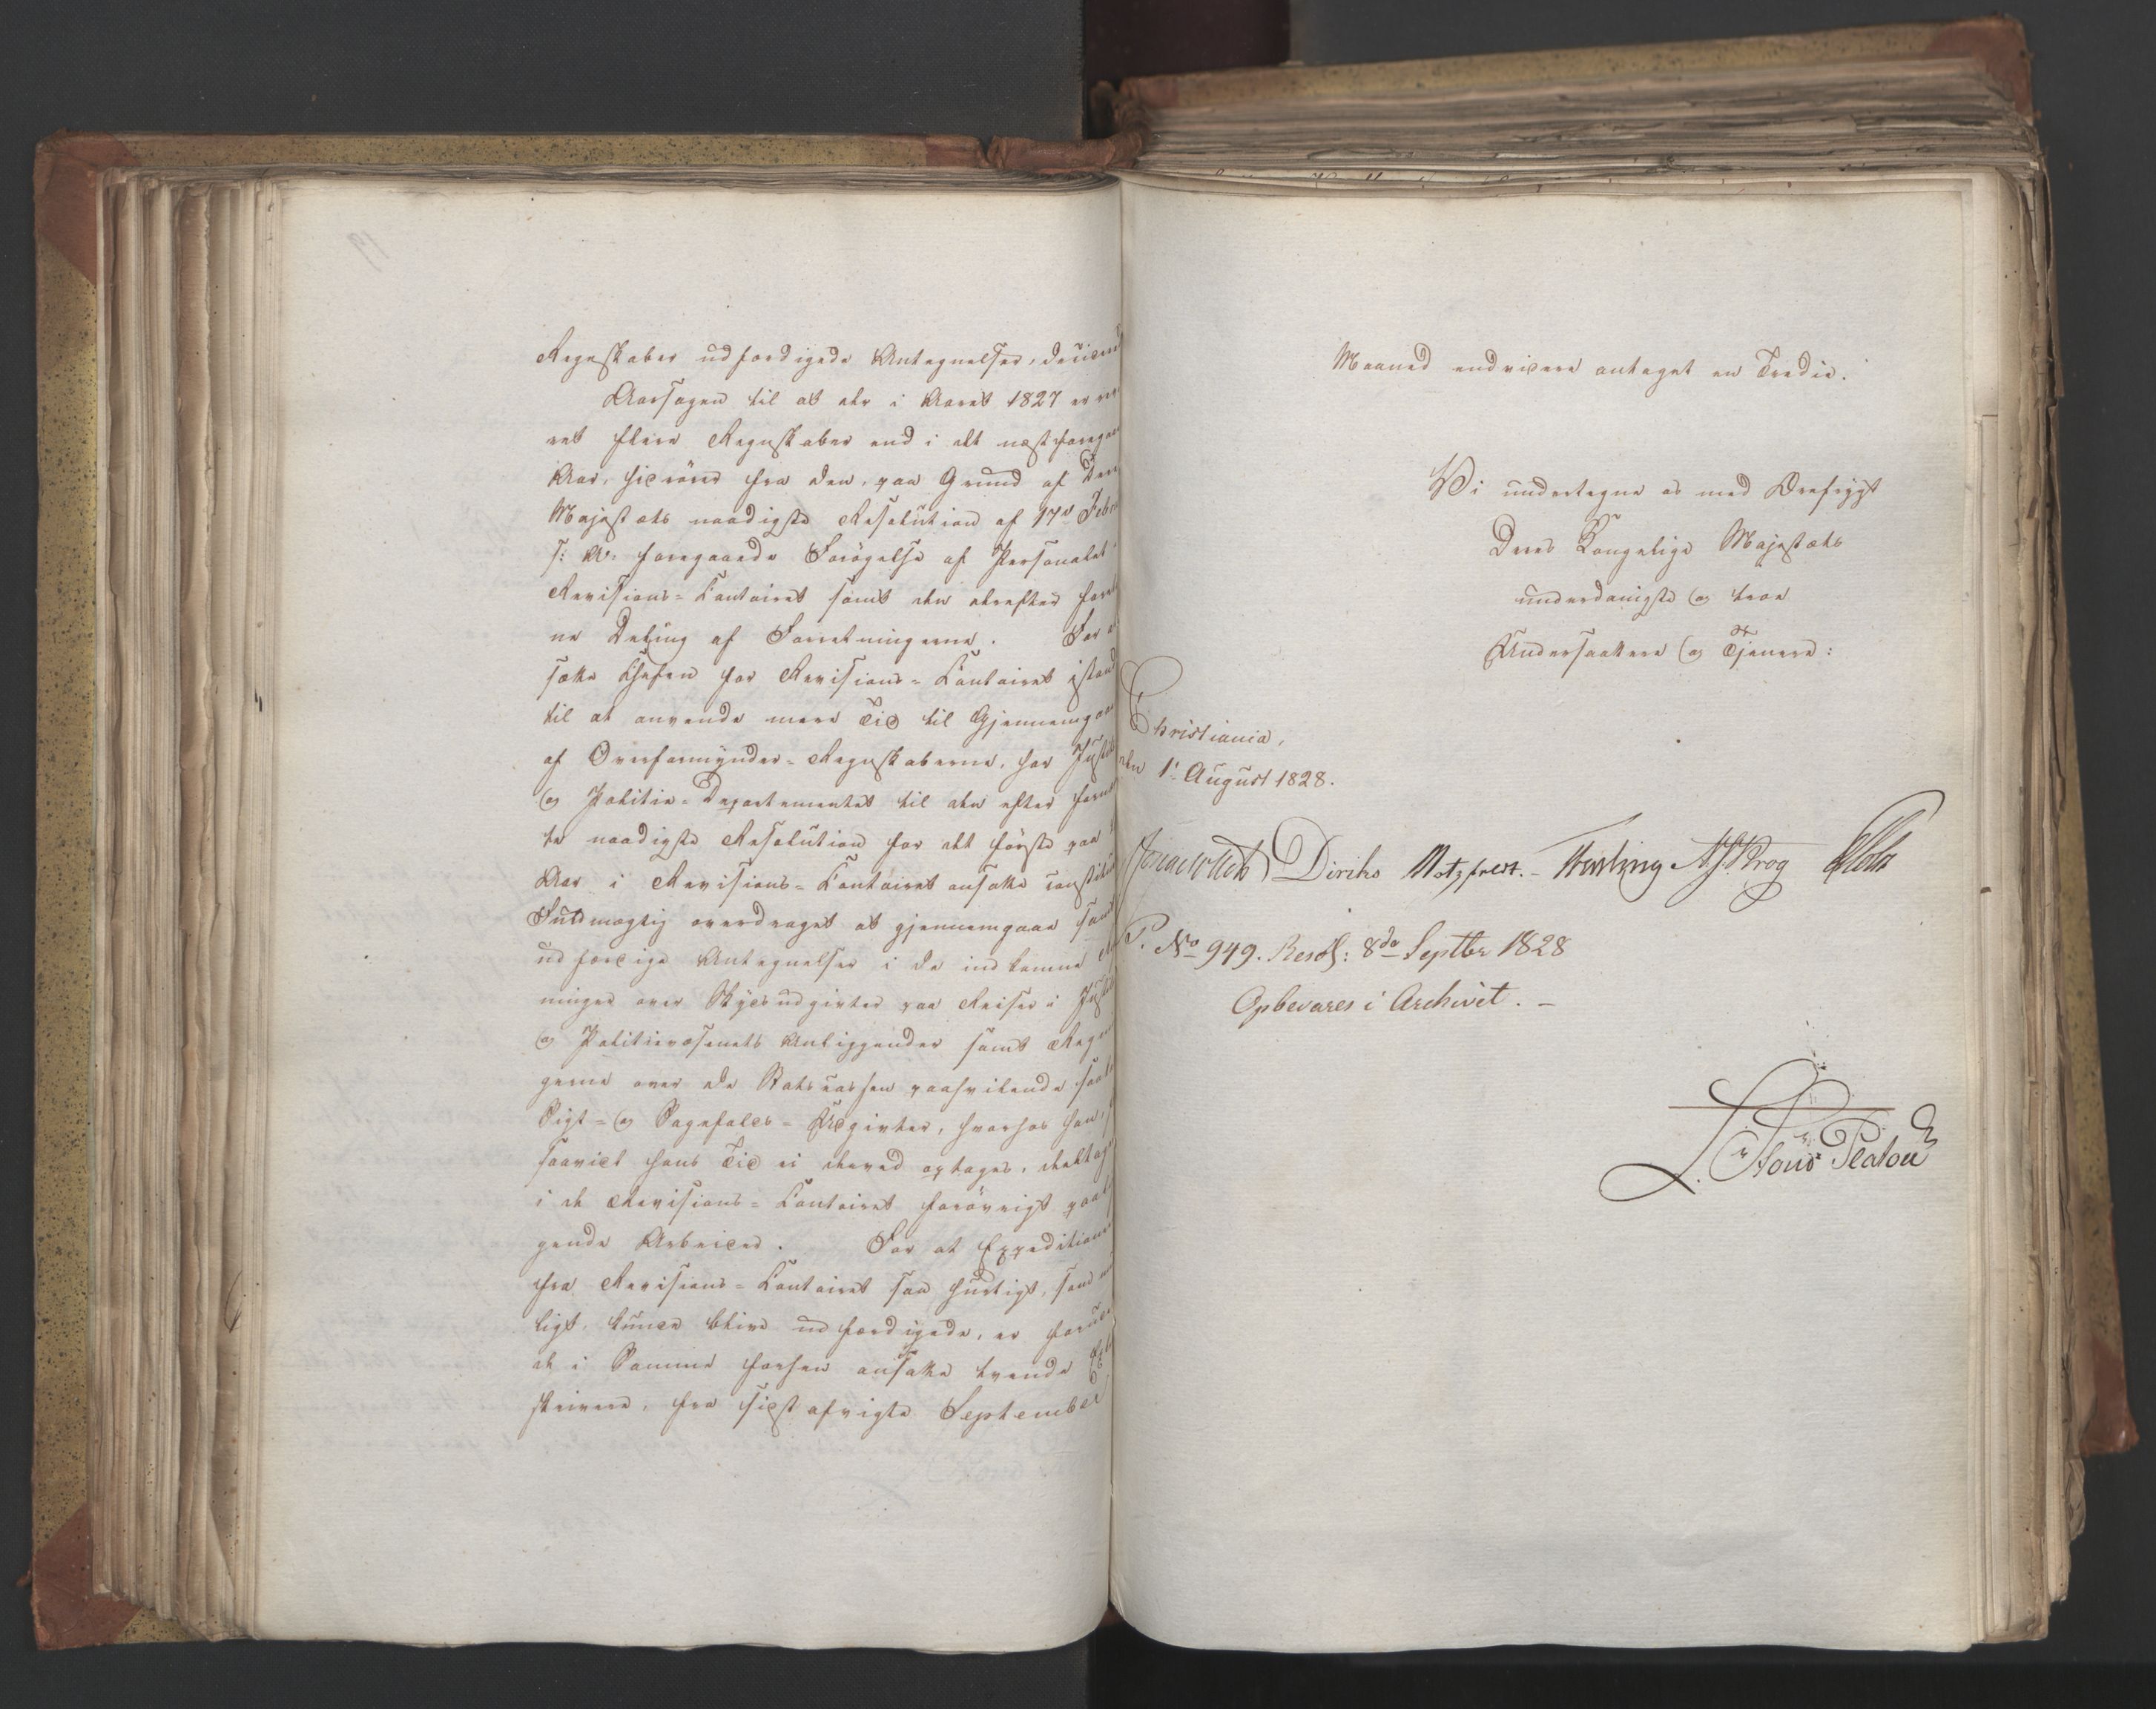 Regnskaber udfærdigede Antegnelser, deciderede
Aarsagen til at der i Aaret 1827 er
ret flere Regnskaber end i det næstforegaaende
Aar, hidrører fra den, paa Grund af Deres
Majestæts naadigste Resolution af 17de Febr
s: A: foregaaede Forøgelse af Personalet i
Revisions-Contoiret samt den derefter
ne Deling af Forretningerne. For at
sætte Chefen for Revisions-Contoiret istand
til at anvende mere Tid til Gjennemgaaelse
af Overformynder-Regnskaberne, har Justits
og Politie-Departementet til den efter
te naadigste Resolution for det første paa
Aar i Revisions-Contoiret ansatte constituerede
Fuldmægtig overdraget at gjennemgaae samt
udfærdige Antegnelser i de indkomne Reg
ninger over Skydsudgivter paa Reiser i Justits
og Politievæsenets Anliggender samt Regnin
gerne over de Statscassen paahvilende saakaldte
Sigt- og Sagefalds-Udgivter, hvorhos han,
saavidt hans Tid ei derved optages, deeltager
i de Revisions-Contoiret forøvrigt paalig
gende Arbeider. For at Expeditionerne
fra Revisions-Contoiret saa hurtigt, som mu
ligt, kunde blive udfærdigede, er foruden
de i Samme forhen ansatte tvende
skrivere, fra sidstafvigte September
Maaned endvidere antaget en Tredie.
Vi undertegne os med Ærefrygt
Deres Kongelige Majestæts
underdanigste og troe
Undersaatter og Tjenere:
Christiania,
den 1 August 1828.
Jonas Collett Diriks Motzfeldt. – Fasting A. J. Krog
P. No 949. Resol: 8de Septbr 1828
Opbevares i Archivet. –
L. Stoud Platou